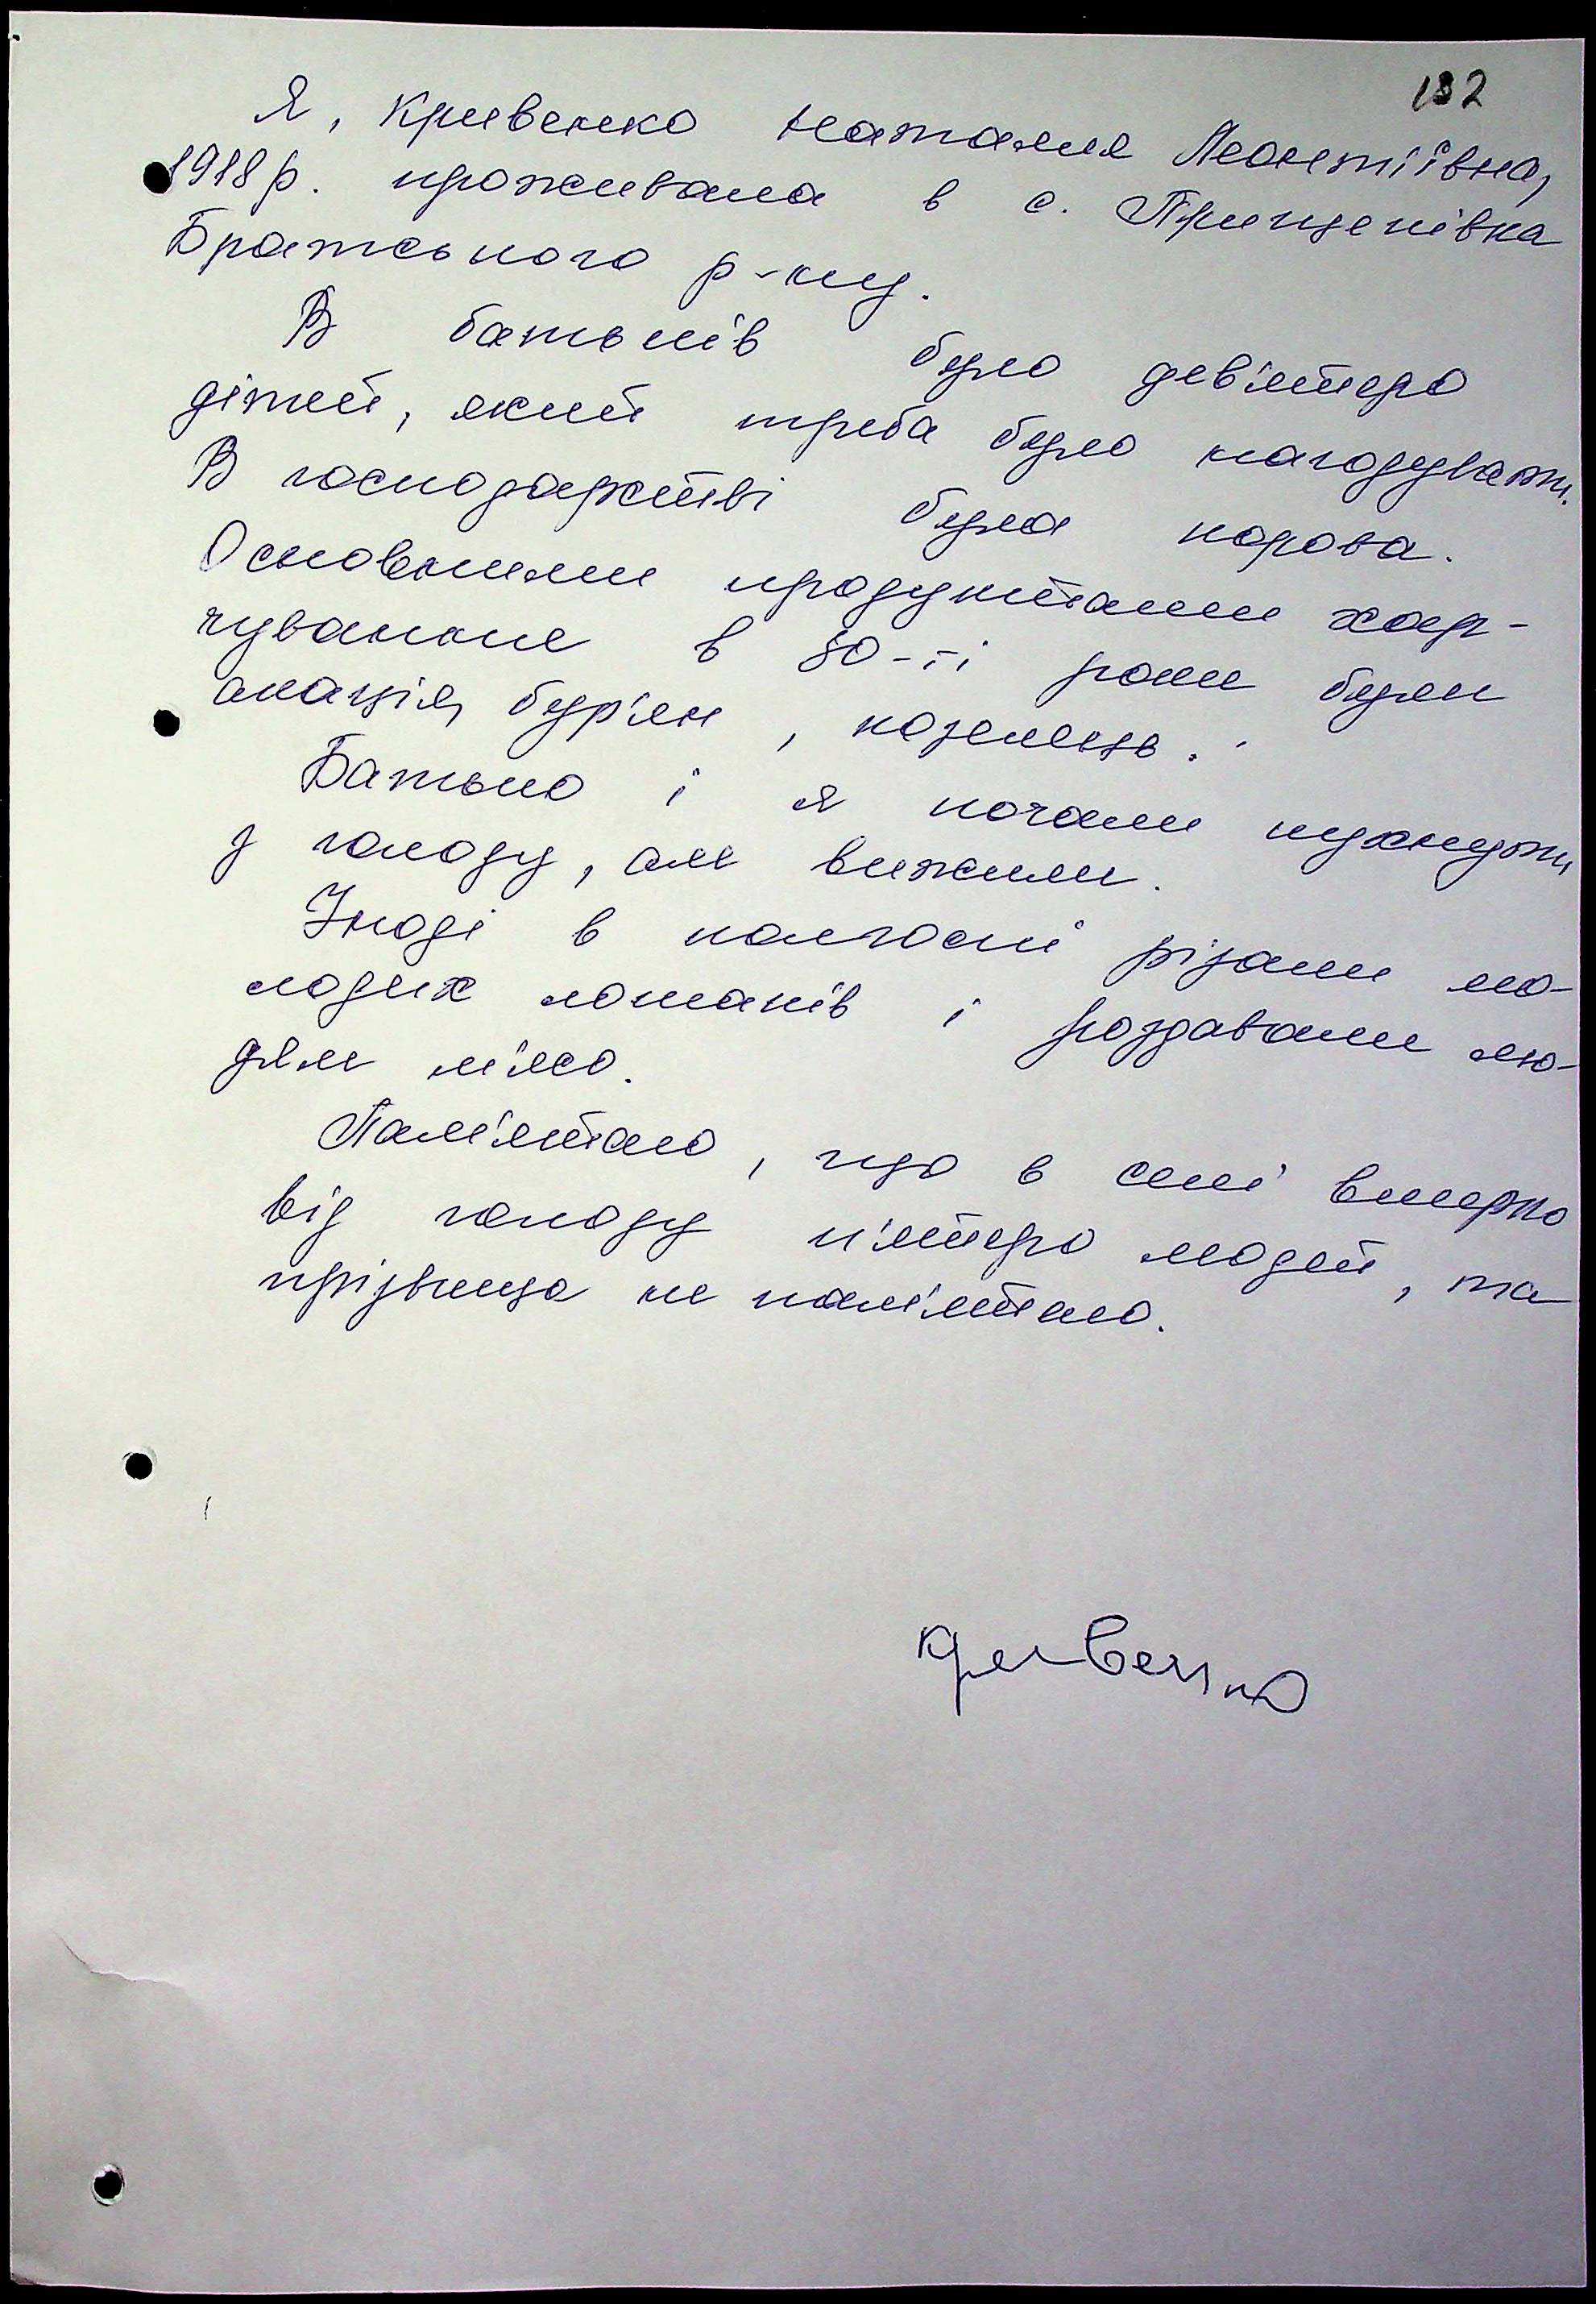 132
Я, Кривенко Наталия Леонтіївна,
1918 р. проживала в с. Прищепівка
Братського р-ну.
В батьків було дев'ятеро
дітей, який треба було нагодувати.
В господарстві була корова.
Основними продуктами хар-
чування в 30-ті роки були
акація, бур'ян, козелець.
Батько і я почали пухнути
з голоду, але вижили.
Іноді в колгоспі різали мо-
лодих лошаків і роздавали лю-
дям м'ясо.
Пам'ятаю, що в селі вмерло
від голоду п'ятеро людей, та
прізвища не пам'ятаю.
Кривенко